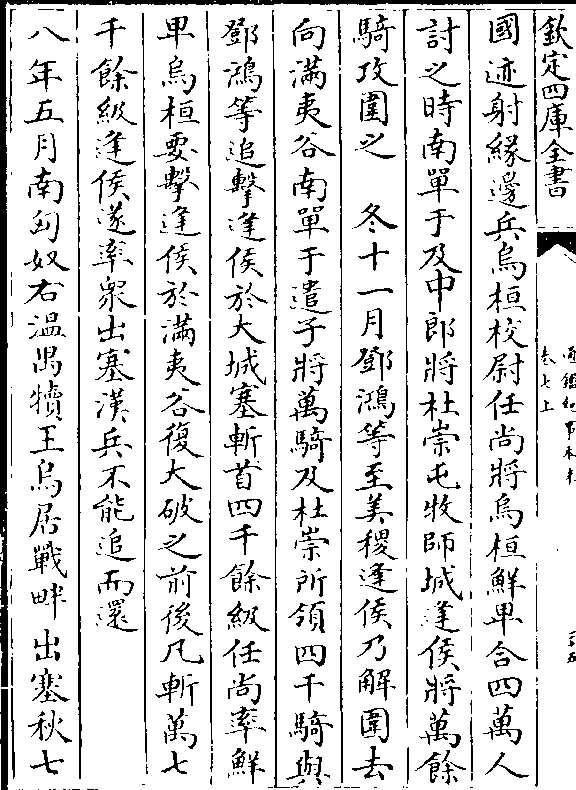 欽定四庫全書
通鑑紀事本末
卷七上
國迹射緣邊兵烏桓校尉任尚將烏桓鮮卑合四萬人
討之時南單于及中郎將杜崇屯牧師城逢侯將萬餘
騎攻圍之　冬十一月鄧鴻等至美稷逢侯乃解圍去
向滿夷谷南單于遣子將萬騎及杜崇所領四千騎與
鄧鴻等追擊逢侯於大城塞斬首四千餘級任尚率鮮
卑烏桓要擊逢侯於滿夷谷復大破之前後凡斬萬七
千餘級逢侯遂率衆出塞漢兵不能追而還
八年五月南匈奴右溫禺犢王烏居戰畔出塞秋七